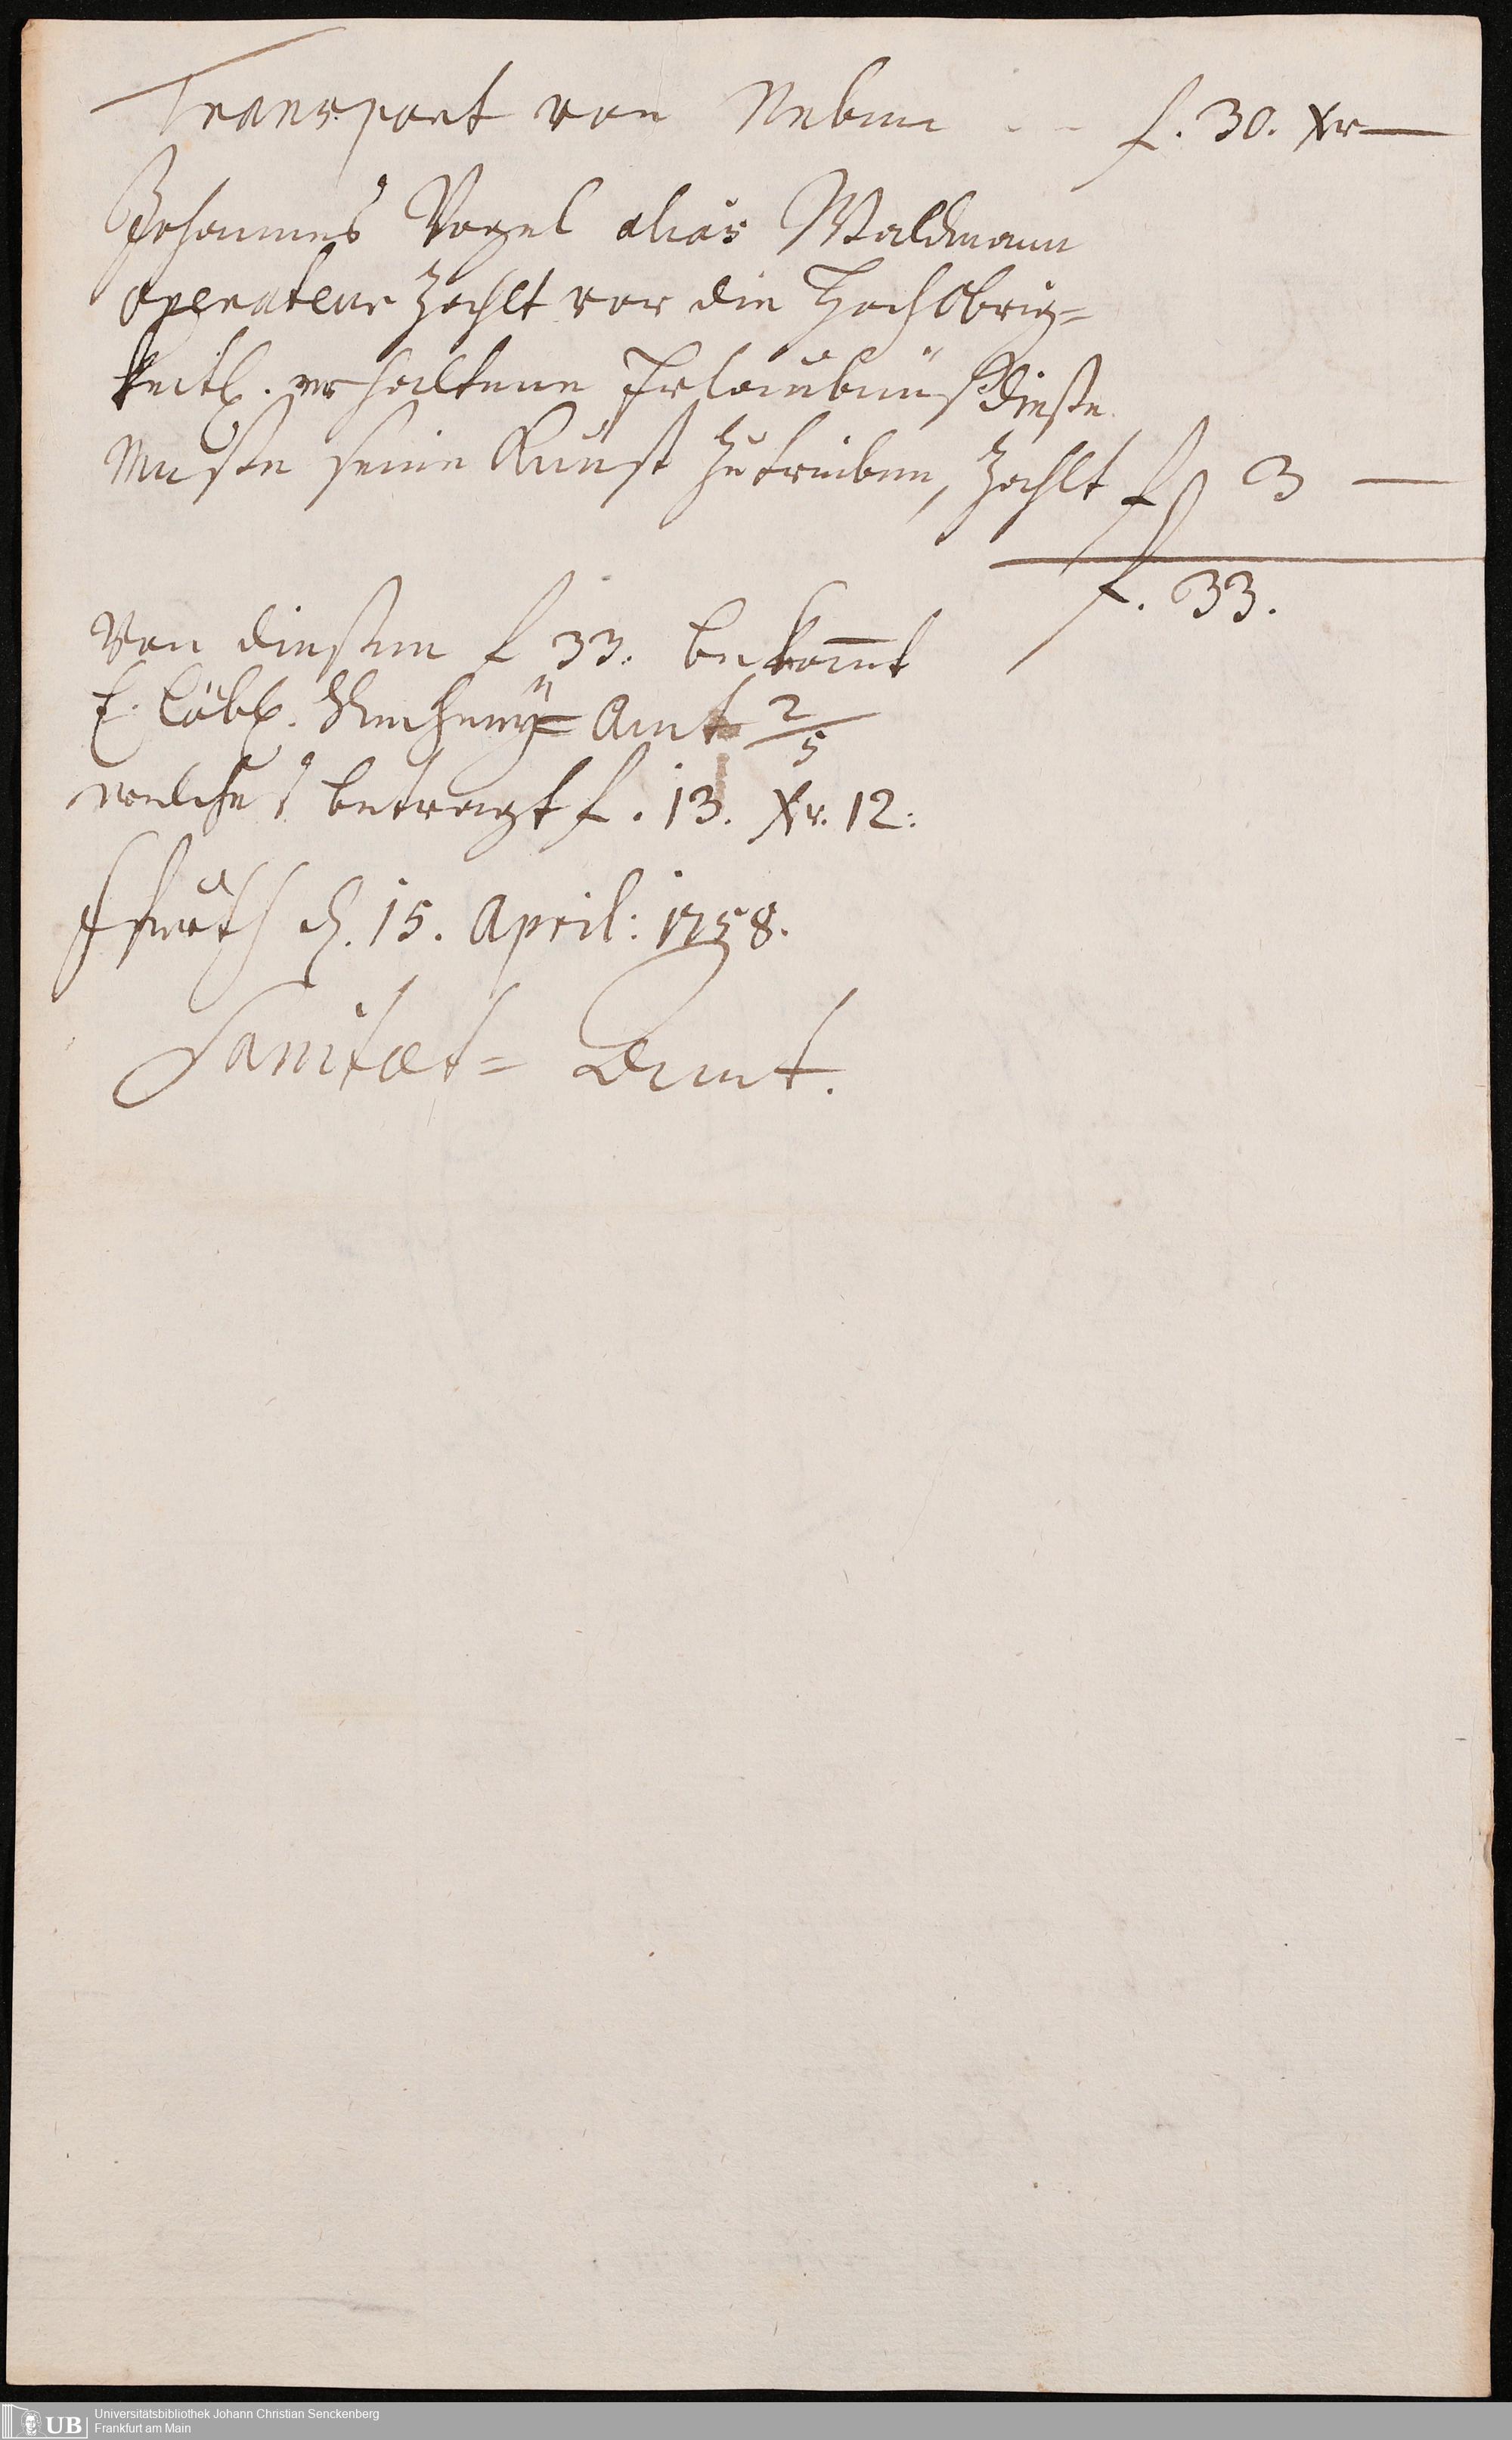 Transport von Neben - - f. 30. Xr —
Johannes Vogel alias Waldmann
Operateur zahlt vor die Hochobrig=
keitl. erhaltene Erlaubnüß dieße
Meße seine Kunst zu treiben, zahlt f 3 —
f. 33.
Von dießen f 33. bekom̅t
E. Löbl. Amt 2/5
welches betragt f. 13. Xr. 12:
Ffurth d. 15. April: 1758.
Sanitæt= Amt.
Universitätsbibliothek Johann Christian Senckenberg
Frankfurt am Main
UB